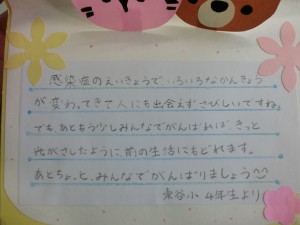 感染症のえいきょうで、いろいろなかんきょう
が変わってきて人にも出会えずさびしいですね。
でも、あともう少しみんなでがんばれば、きっと
光がさしたように、前の生活にもどれます。
あとちょっと、みんなでがんばりましょう
小4年生より